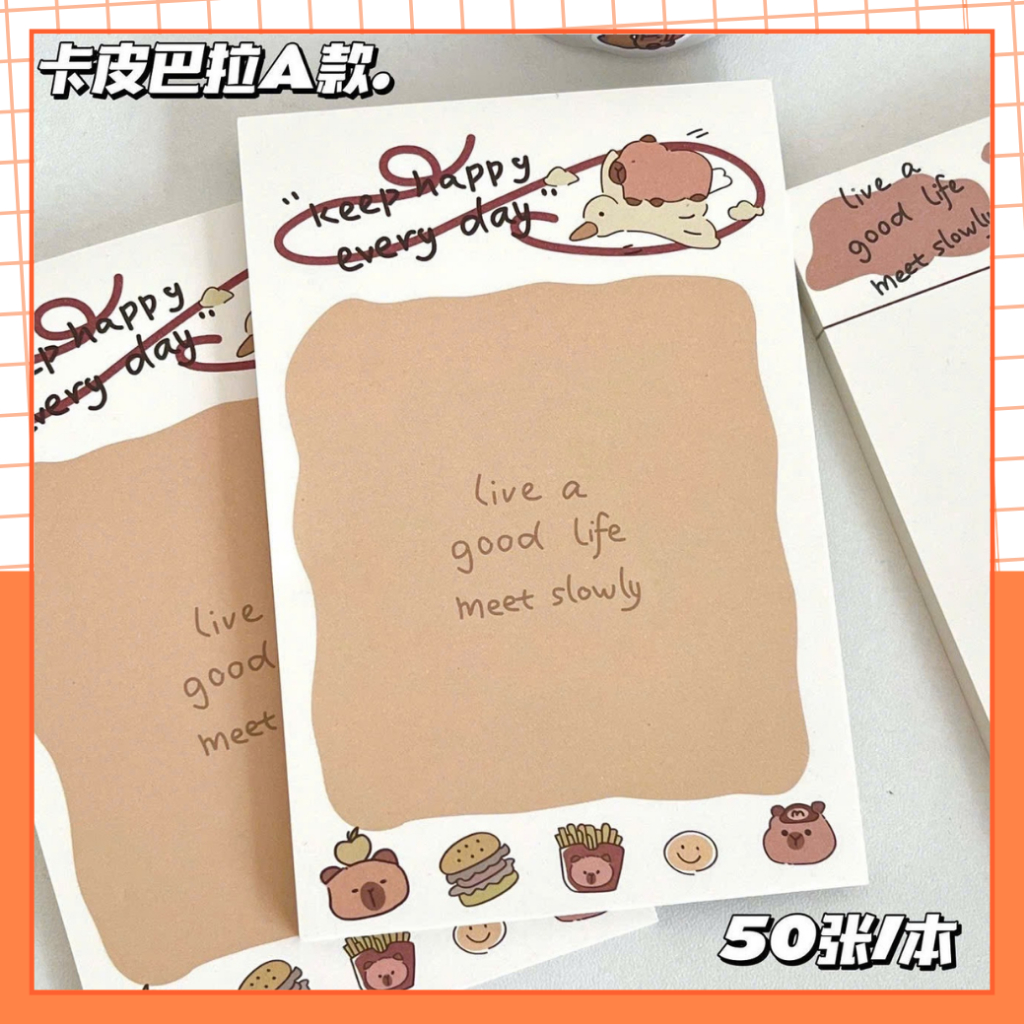 卡皮巴拉A款.
"keep happy
every day"
live a
good life
meet slowly
live a
good life
meet slowly
happy
every day"
live
good
meet
M
50张/本